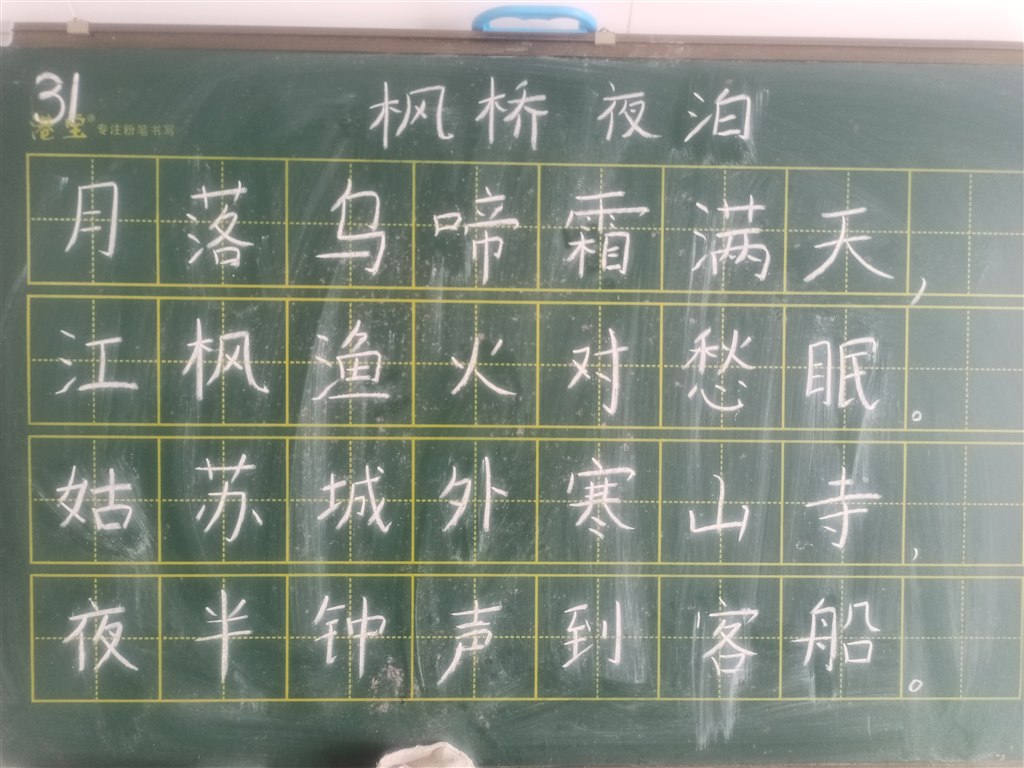 31
枫桥夜泊
专注粉笔书写
月落乌啼霜满天,
江枫渔火对愁眠。
姑苏城外寒山寺,
夜半钟声到客船。